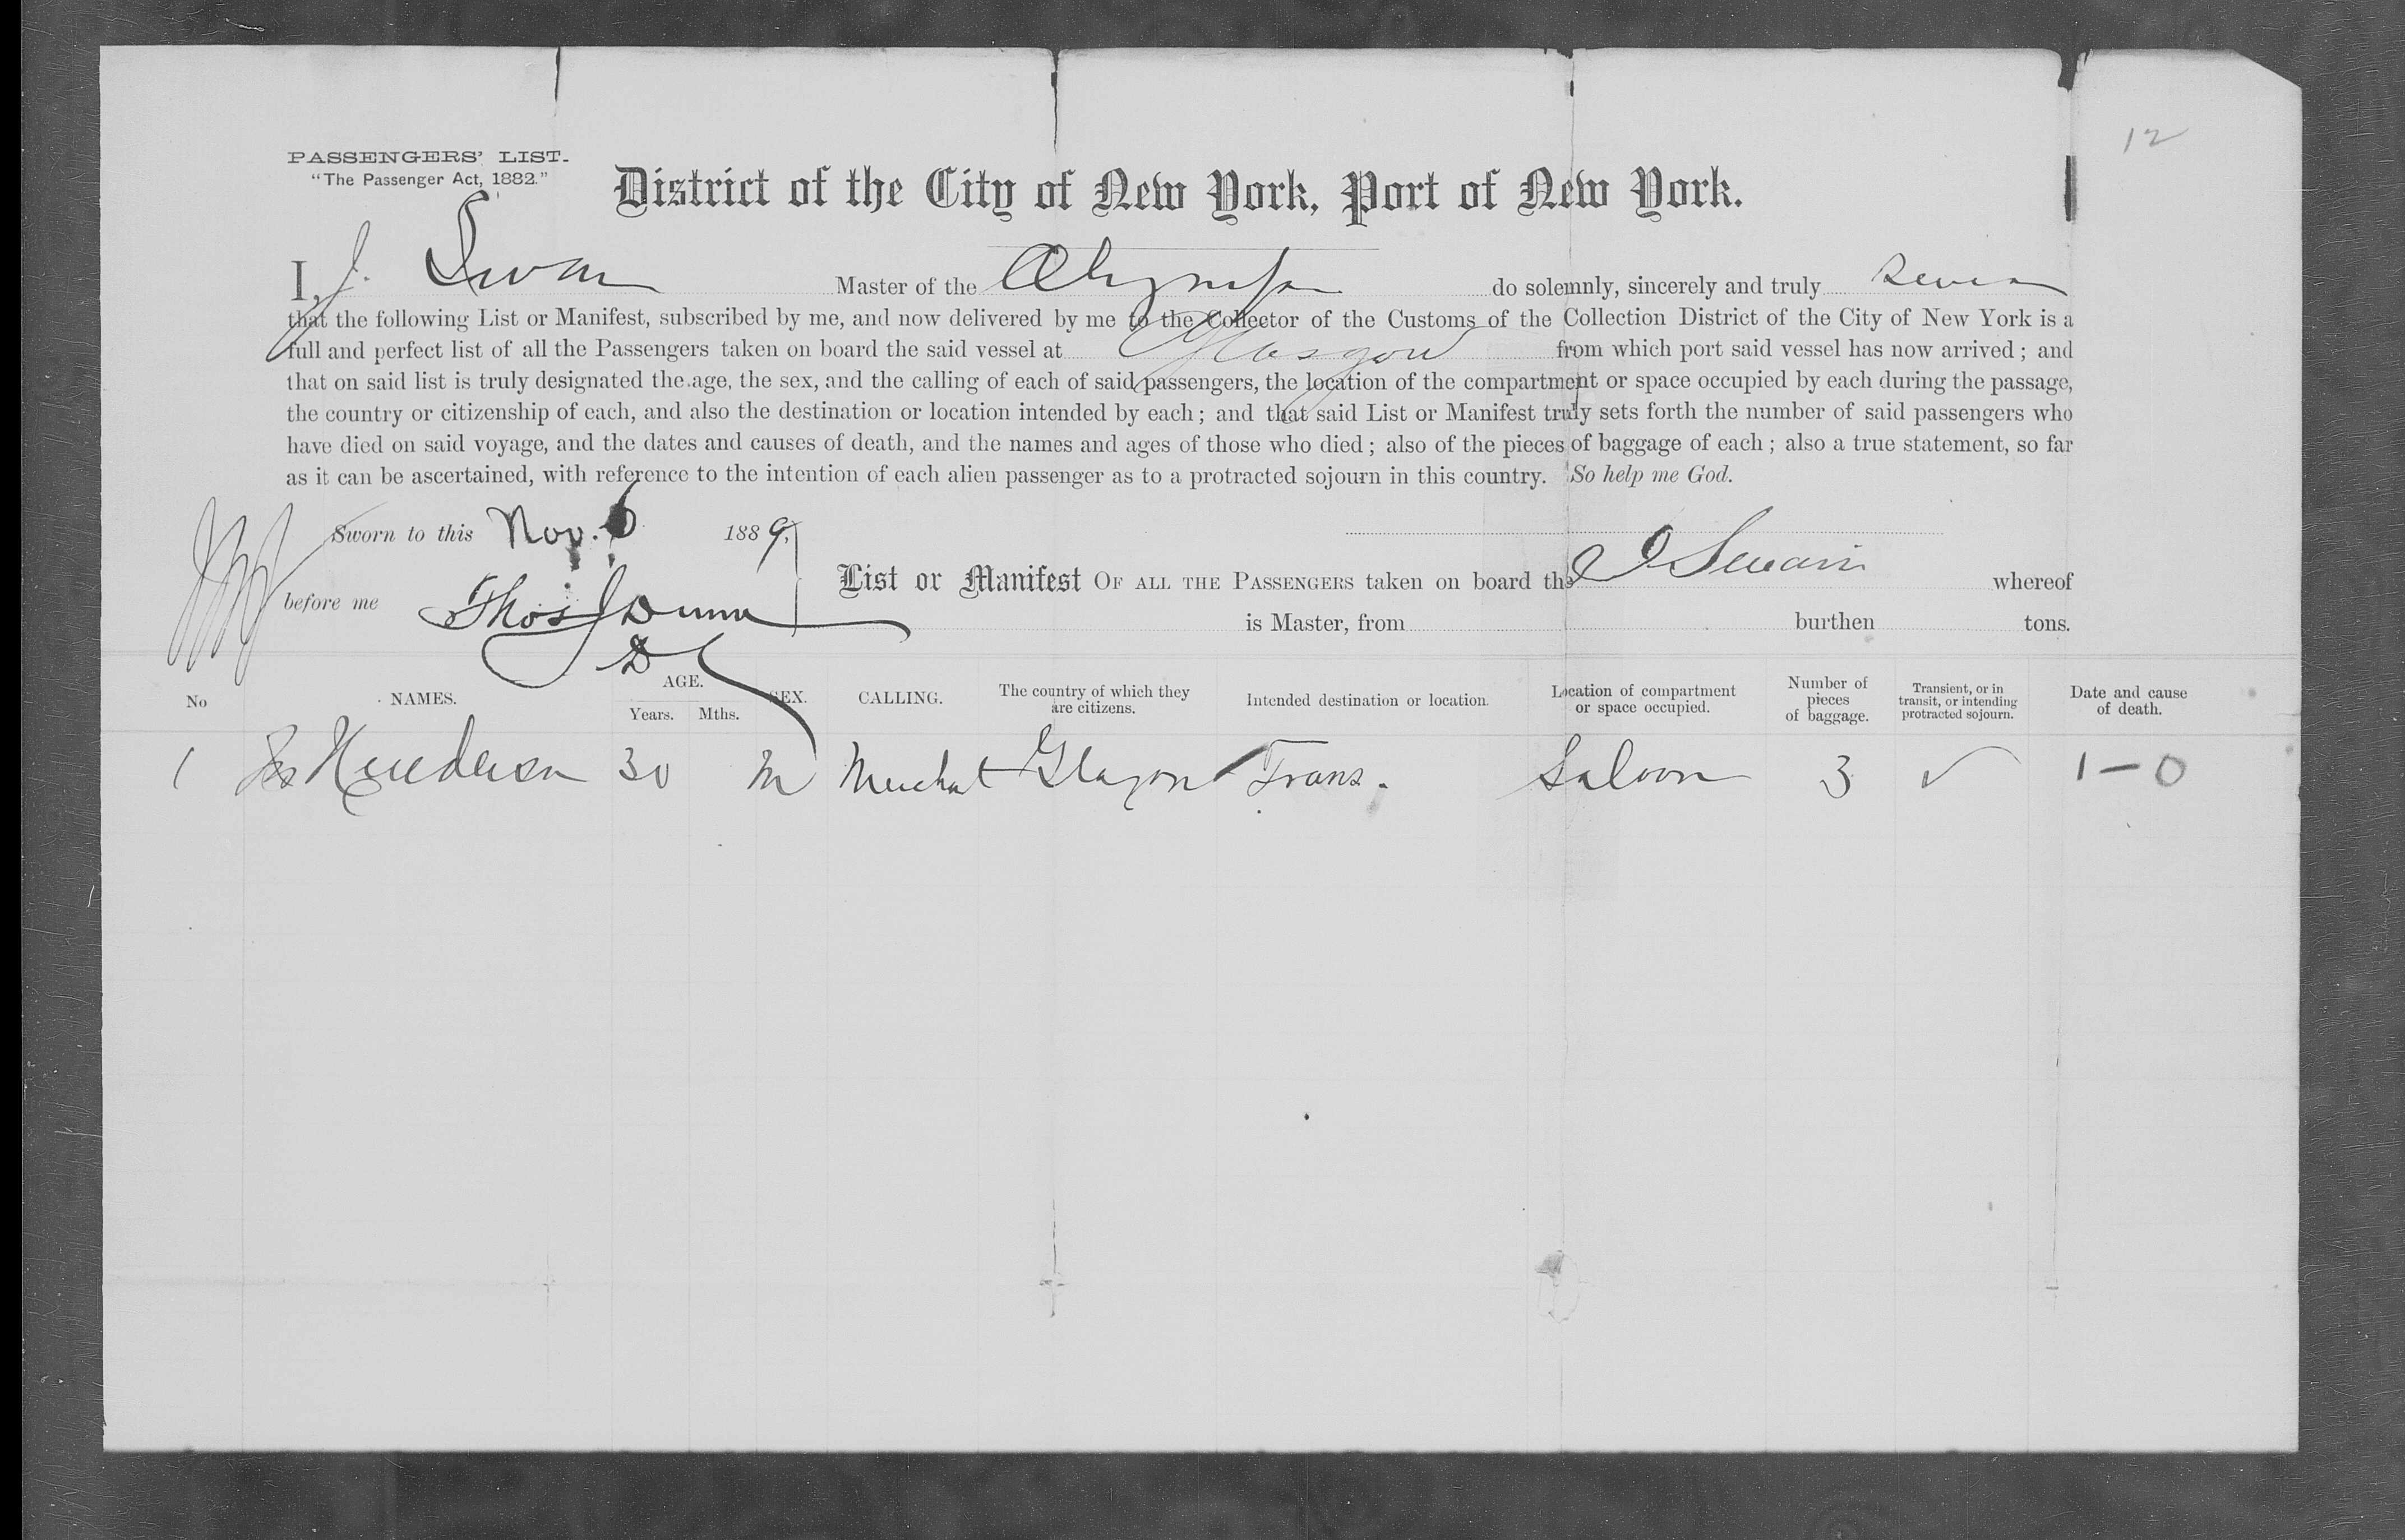 12
PASSENGERS' LIST.
"The Passenger Act, 1882."
District of the City of New York, Port of New York.
I, J. Swan Master of the Olympia do solemnly, sincerely and truly swear
that the following List or Manifest, subscribed by me, and now delivered by me to the Collector of the Customs of the Collection District of the City of New York is a
full and perfect list of all the Passengers taken on board the said vessel at Glasgow from which port said vessel has now arrived; and
that on said list is truly designated the age, the sex, and the calling of each of said passengers, the location of the compartment or space occupied by each during the passage,
the country or citizenship of each, and also the destination or location intended by each; and that said List or Manifest truly sets forth the number of said passengers who
have died on said voyage, and the dates and causes of death, and the names and ages of those who died; also of the pieces of baggage of each; also a true statement, so far
as it can be ascertained, with reference to the intention of each alien passenger as to a protracted sojourn in this country. So help me God.
Sworn to this Nov. 6 1889.
before me Thos J Dunn
List or Manifest OF ALL THE PASSENGERS taken on board the J Swan whereof
is Master, from burthen tons.
No NAMES. AGE. Years. Mths. SEX. CALLING. The country of which they are citizens. Intended destination or location. Location of compartment or space occupied. Number of pieces of baggage. Transient, or in transit, or intending protracted sojourn. Date and cause of death.
1 Henderson 30 M Merchat Glasgow Trans. Saloon 3 ✓ 1-0